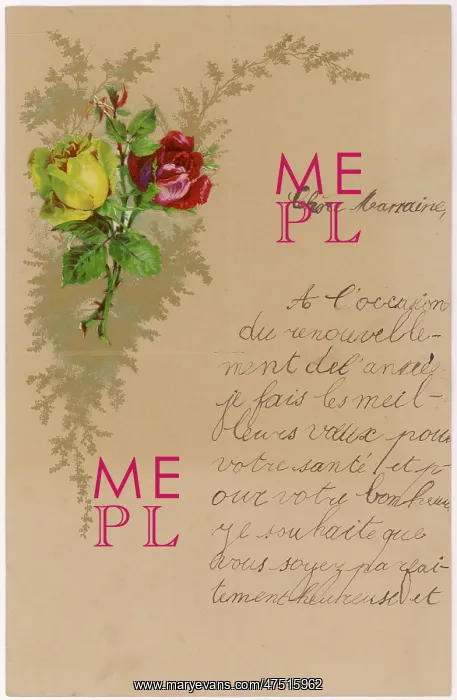 ME
PL
Chère Marraine,
A l'occasion
du renouvelle-
ment de l'année
je fais les meil-
leurs vœux pour
votre santé et p-
our votre bonheur
je souhaite que
vous soyez parfai-
tement heureuse et
ME
PL
www.maryevans.com/47515962